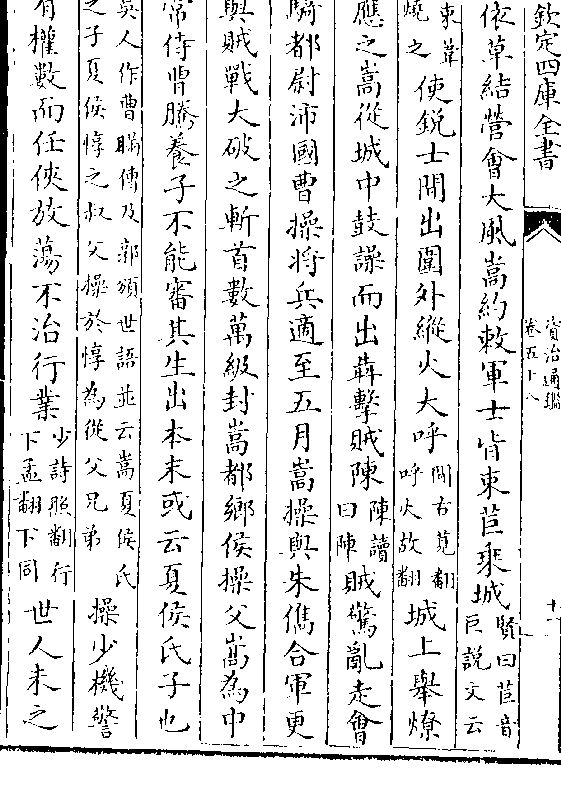 欽定四庫全書
資治通鑑
卷五十八
依草結營會大風嵩約敕軍士皆束苣乘城
賢曰苣音
巨説文云
束葦
燒之
使鋭士間出圍外縱火大呼
間古莧翻
呼火故翻
城上舉燎
應之嵩從城中鼓譟而出犇擊賊陳
陳讀
曰陣
賊驚亂走會
騎都尉沛國曹操將兵適至五月嵩操與朱儁合軍更
與賊戰大破之斬首數萬級封嵩都鄉侯操父嵩為中
常侍曹騰養子不能審其生出本末或云夏侯氏子也
吳人作曹瞞傳及郭頒世語並云嵩夏侯氏
之子夏侯惇之叔父操於惇為從父兄弟
操少機警
有權數而任俠放蕩不治行業
少詩照翻行
下孟翻下同
世人未之